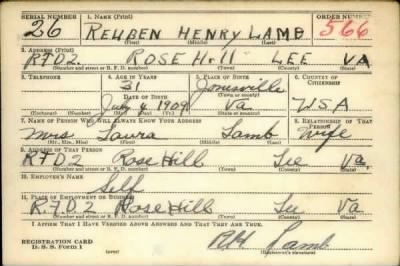 SERIAL NUMBER 1. NAME (Print) ORDER NUMBER
26 REUBEN HENRY LAMB 566
(First) (Middle) (Last)
2. ADDRESS (Print)
RTD2. ROSE Hill LEE VA
(Number and street or R. F. D. number) (Town) (County) (State)
3. TELEPHONE 4. AGE IN YEARS 5. PLACE OF BIRTH 6. COUNTRY OF CITIZENSHIP
31 Jonesville
DATE OF BIRTH (Town or county)
July 4 1909 Va USA
(Exchange) (Number) (Mo.) (Day) (Yr.) (State or country)
7. NAME OF PERSON WHO WILL ALWAYS KNOW YOUR ADDRESS 8. RELATIONSHIP OF THAT PERSON
Mrs Laura Lamb Wife
(Mr., Mrs., Miss) (First) (Middle) (Last)
9. ADDRESS OF THAT PERSON
RFD2 Rose Hill Lee Va.
(Number and street or R. F. D. number) (Town) (County) (State)
10. EMPLOYER'S NAME
Self
11. PLACE OF EMPLOYMENT OR BUSINESS
R.F.D. 2 Rose Hill Lee Va
(Number and street or R. F. D. number) (Town) (County) (State)
I AFFIRM THAT I HAVE VERIFIED ABOVE ANSWERS AND THAT THEY ARE TRUE.
REGISTRATION CARD
D. S. S. Form 1 (over) RH Lamb
(Registrant's signature)